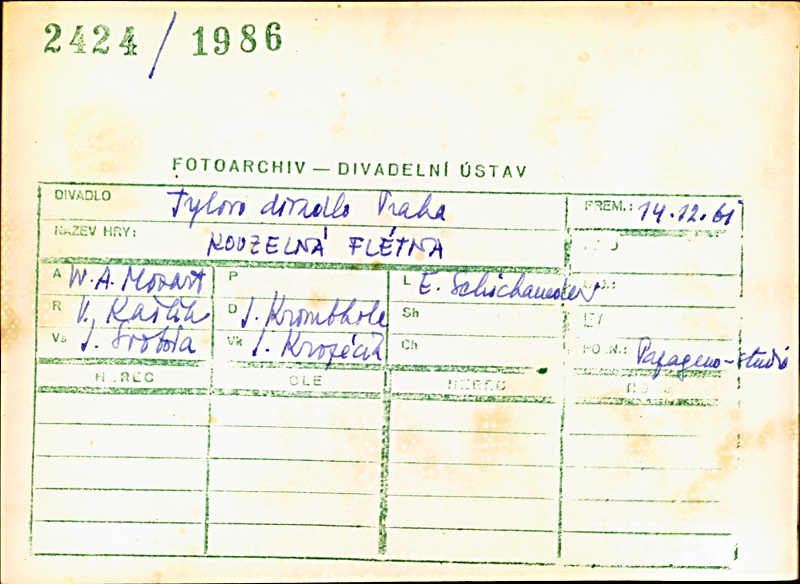 2424 / 1986
FOTOARCHIV — DIVADELNÍ ÚSTAV
DIVADLO Tylovo divadlo Praha PREM.: 14.12.61
NÁZEV HRY: KOUZELNÁ FLÉTNA
A W. A. Mozart P L E. Schickaneder
R V. Kašlík D J. Krombholc Sh
Vs J. Svoboda Vk J. Kropáček Ch POZN.: Papageno-studie
HEREC ROLE HEREC